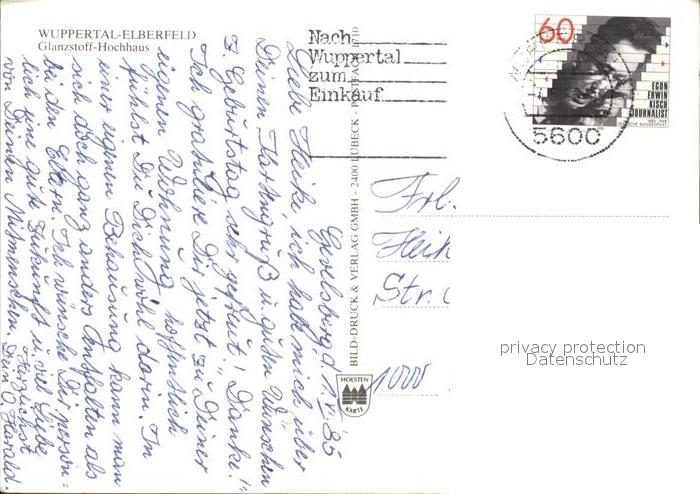 WUPPERTAL-ELBERFELD
Glanzstoff-Hochhaus
Nach
Wuppertal
zum
Einkauf
60
EGON
ERWIN
KISCH
JOURNALIST
DEUTSCHE BUNDESPOST
5600
Gevelsberg, d. 85
Liebe Heike, ich hab mich über
Deinen Kartengruß u. guten Wünschen
z. Geburtstag sehr gefreut! "Danke!"
Ich gratuliere Dir jetzt zu Deiner
eigenen Wohnung hoffentlich
fühlst Du Dich wohl darin. In
einer eigenen Behausung kann man
sich doch ganz anders entfalten als
bei den Eltern. Ich wünsche Dir persön=
lich eine gute Zukunft u. viel Liebe
von Deinen Mitmenschen. Herzlichst
Dein O. Harald
BILD-DRUCK & VERLAG GMBH - 2400 LÜBECK - POSTFACH 1710
Frl.
Heik
Str.
1000
HOLSTEN
KARTE
privacy protection
Datenschutz